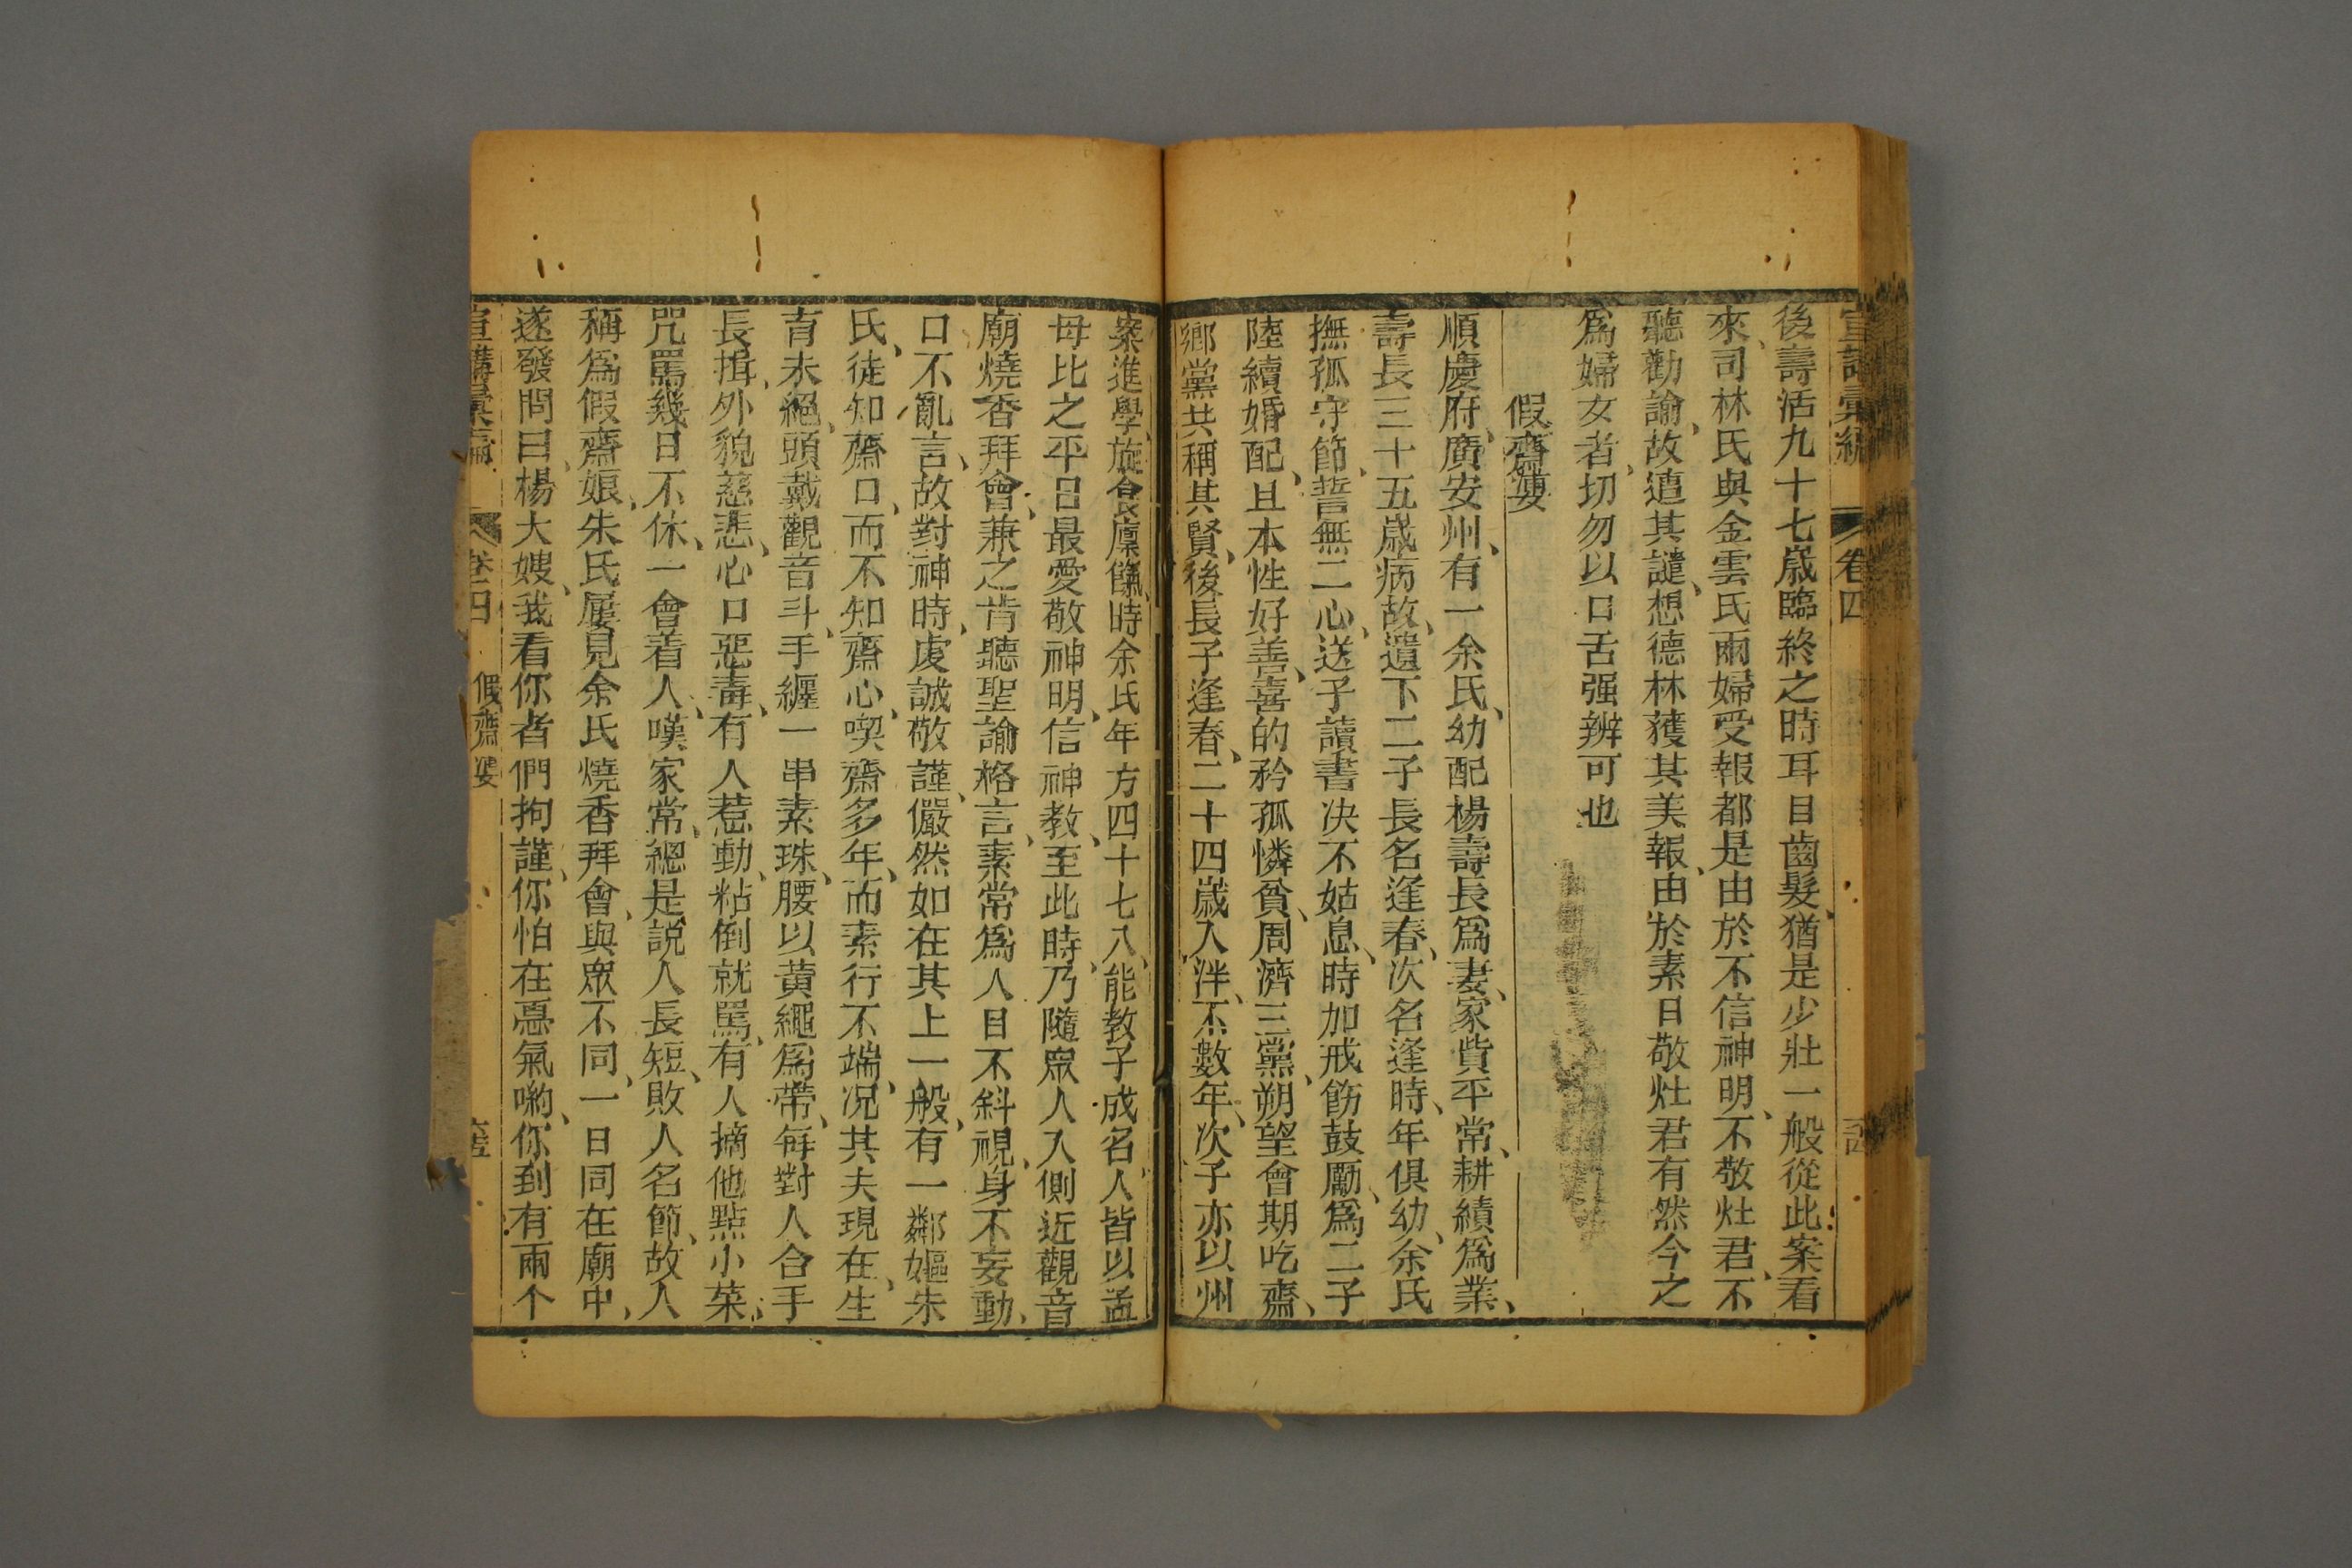 宣講彙編 卷四
後壽活九十七歲臨終之時耳目齒髮、猶是少壯一般從此案看
來、司林氏與金雲氏兩婦受報都是由於不信神明、不敬灶君、不
聽勸諭、故遭其譴、想德林獲其美報、由於素日敬灶君有然今之
爲婦女者、切勿以口舌强辨可也
假齋婆
順慶府、廣安州、有一余氏、幼配楊壽長爲妻、家貲平常、耕績爲業、
壽長三十五歲病故、遺下二子長名逢春、次名逢時、年俱幼、余氏
撫孤守節、誓無二心、送子讀書决不姑息、時加戒飭鼓勵、爲二子
陸續婚配、且本性好善、喜的矜孤憐貧、周濟三黨、朔望會期吃齋、
鄉黨共稱其賢、後長子逢春、二十四歲入泮、不數年、次子亦以州
案進學、旋食廩餼、時余氏年方四十七八、能教子成名、人皆以孟
母比之平日最愛敬神明、信神教、至此時、乃隨衆人入側近觀音
廟燒香拜會、兼之肯聽聖諭格言、素常爲人目不斜視、身不妄動、
口不亂言、故對神時、虔誠敬謹、儼然如在其上一般、有一鄰嫗朱
氏、徒知齋口、而不知齋心、喫齋多年、而素行不端、况其夫現在、生
育未絕、頭戴觀音斗、手纒一串素珠、腰以黃繩爲帶、每對人合手
長揖、外貌慈悲、心口惡毒、有人惹動、粘倒就罵、有人摘他點小菜、
咒罵幾日不休、一會着人、嘆家常、總是說人長短、敗人名節、故人
稱爲假齋娘、朱氏屢見余氏燒香拜會、與衆不同、一日同在廟中、
遂發問曰、楊大嫂、我看你者們拘謹、你怕在慪氣喲、你到有兩个
宣講彙編 卷四 假齋婆